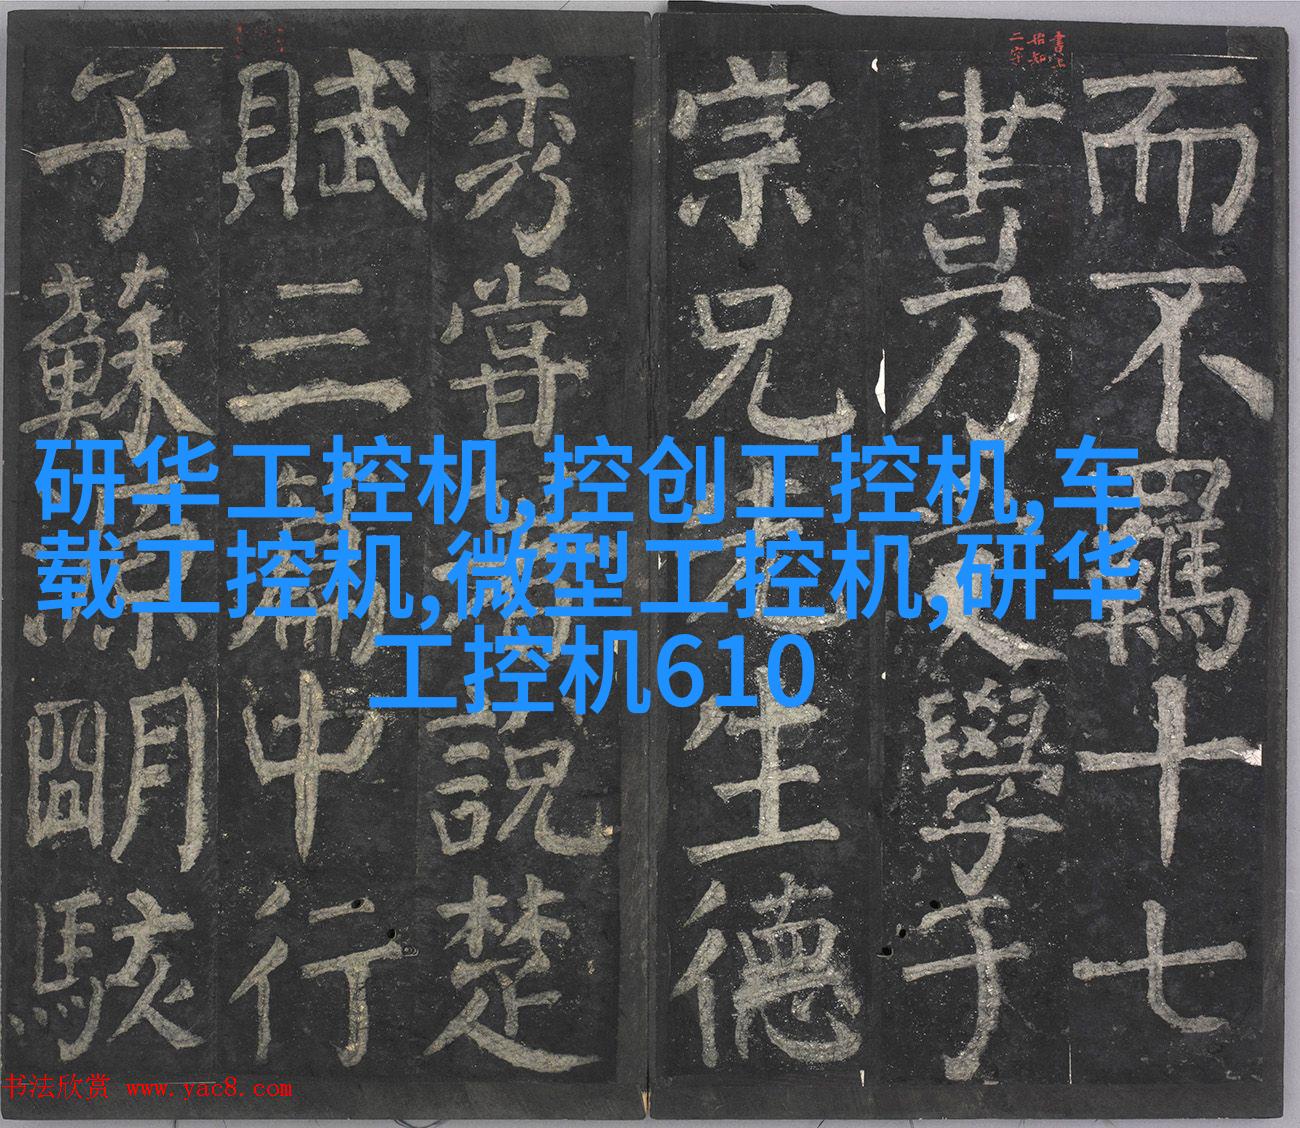 書上
始知
二字
而不羈十七
書乃受學于
宗兄先生德
秀嘗著說楚
賦三篇中行
子蘇源明駭
研华工控机,控创工控机,车
载工控机,微型工控机,研华
工控机610
书法欣赏 www.yac8.com